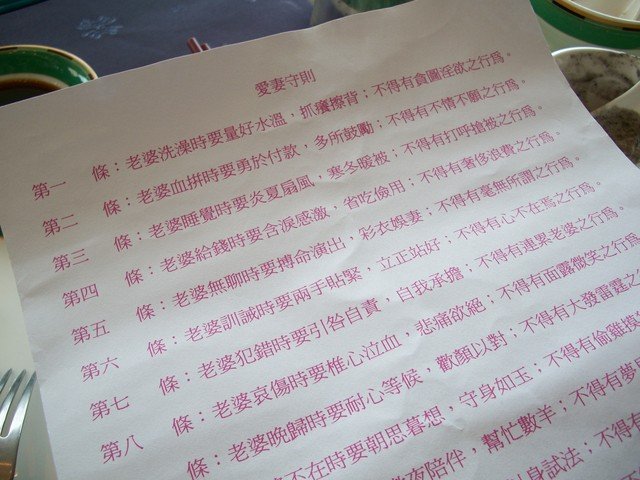 愛妻守則
第一 條：老婆洗澡時要量好水溫，抓癢擦背；不得有貪圖淫欲之行為。
第二 條：老婆血拼時要勇於付款，多所鼓勵；不得有不情不願之行為。
第三 條：老婆睡覺時要炎夏扇風，寒冬暖被；不得有打呼搶被之行為。
第四 條：老婆給錢時要含淚感激，省吃儉用；不得有奢侈浪費之行為。
第五 條：老婆無聊時要搏命演出，彩衣娛妻；不得有毫無所謂之行為。
第六 條：老婆訓誡時要兩手貼緊，立正站好；不得有心不在焉之行為。
第七 條：老婆犯錯時要引咎自責，自我承擔；不得有連累老婆之行為。
第八 條：老婆哀傷時要椎心泣血，悲痛欲絕；不得有面露微笑之行
條：老婆晚歸時要耐心等候，歡顏以對；不得有大發雷霆之
不在時要朝思暮想，守身如玉；不得有偷雞摸
夜陪伴，幫忙數羊；不得有夢
身試法；不得有